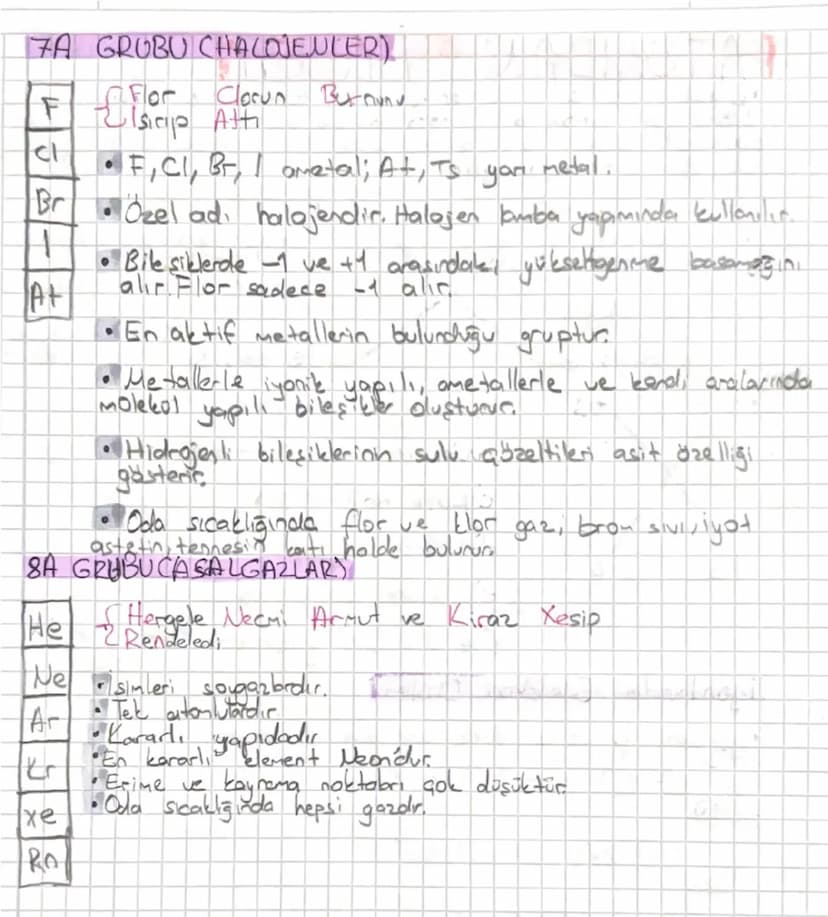 7A GRUBU (HALOJENLER)
F
Cl
Br
I
At
Flor Clorun Burnunu
Isırıp Attı
• F, Cl, Br, I ametal; At, Ts yarı metal.
• Özel adı halojendir. Halojen lamba yapımında kullanılır.
• Bileşiklerde -1 ve +7 arasındaki yükseltgenme basamağını
alır. Flor sadece -1 alır.
• En aktif metallerin bulunduğu gruptur.
• Metallerle iyonik yapılı, ametallerle ve kendi aralarında
molekül yapılı bileşikler oluşturur.
• Hidrojenli bileşiklerinin sulu çözeltileri asit özelliği
gösterir.
• Oda sıcaklığında flor ve klor gaz, brom sıvı, iyot
astatin, tennesin katı halde bulunur.
8A GRUBU (ASALGAZLAR)
He
Ne
Ar
Kr
Xe
Rn
Hergele Necmi Armut ve Kiraz Xesip
Rendeledi
• İsimleri soygazlardır.
• Tek atomlulardır
• Kararlı yapıdadır
• En kararlı element Neon'dur.
• Erime ve kaynama noktaları çok düşüktür.
• Oda sıcaklığında hepsi gazdır.